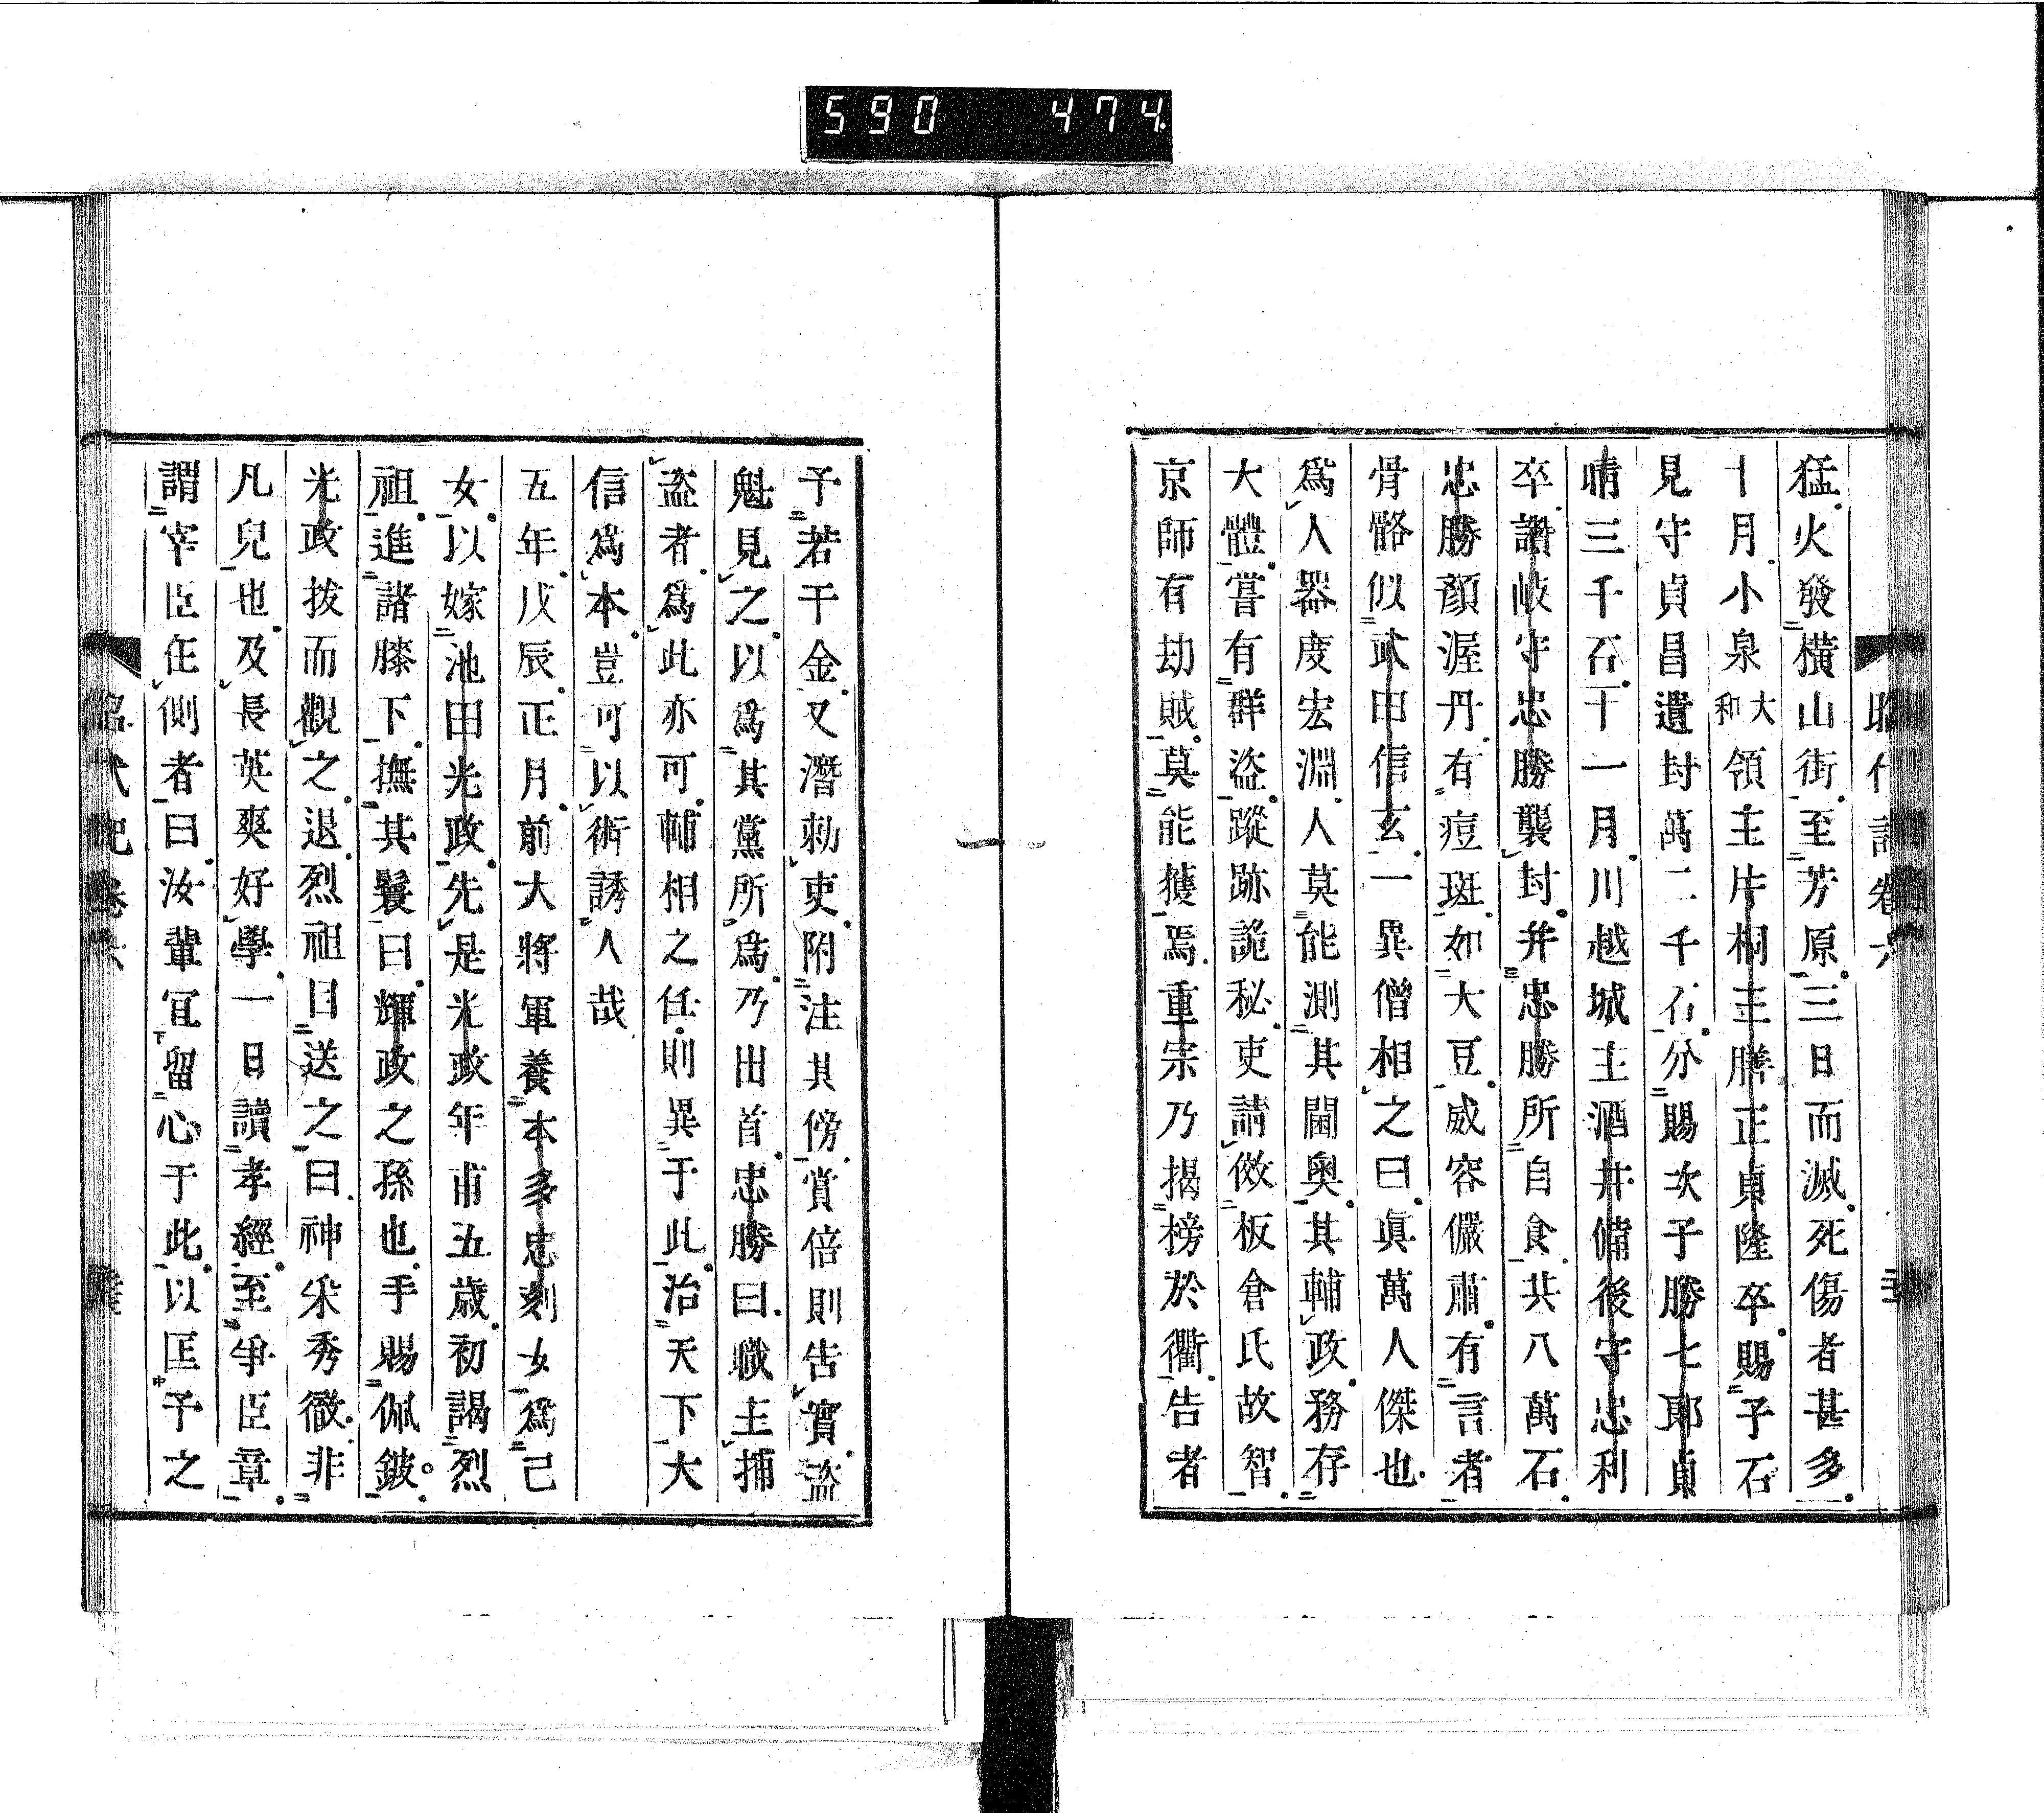 590 474
猛火發橫山街至芳原三日而滅死傷者甚多
十月小泉大和領主片桐主膳正貞隆卒賜子石
見守貞昌遺封萬二千石分賜次子勝七郞貞
晴三千石十一月川越城主酒井備後守忠利
卒讚岐守忠勝襲封并忠勝所自食共八萬石
忠勝顏渥丹有痘斑如大豆威容儼肅有言者
骨骼似武田信玄一異僧相之曰眞萬人傑也
爲人器度宏淵人莫能測其閫奧其輔政務存
大體嘗有群盜蹤跡詭秘吏請倣板倉氏故智
京師有劫賊莫能獲焉重宗乃揭榜於衢告者
予若干金又潛勅吏附注其傍賞倍則告實盜
魁見之以爲其黨所爲乃出首忠勝曰職主捕
盜者爲此亦可輔相之任則異于此治天下大
信爲本豈可以術誘人哉
五年戊辰正月前大將軍養本多忠刻女爲己
女以嫁池田光政先是光政年甫五歲初謁烈
祖進諸膝下撫其鬟曰輝政之孫也手賜佩鈹
光政拔而觀之退烈祖目送之曰神采秀徹非
凡兒也及長英爽好學一日讀孝經至爭臣章
謂宰臣在側者曰汝輩宜留心于此以匡予之